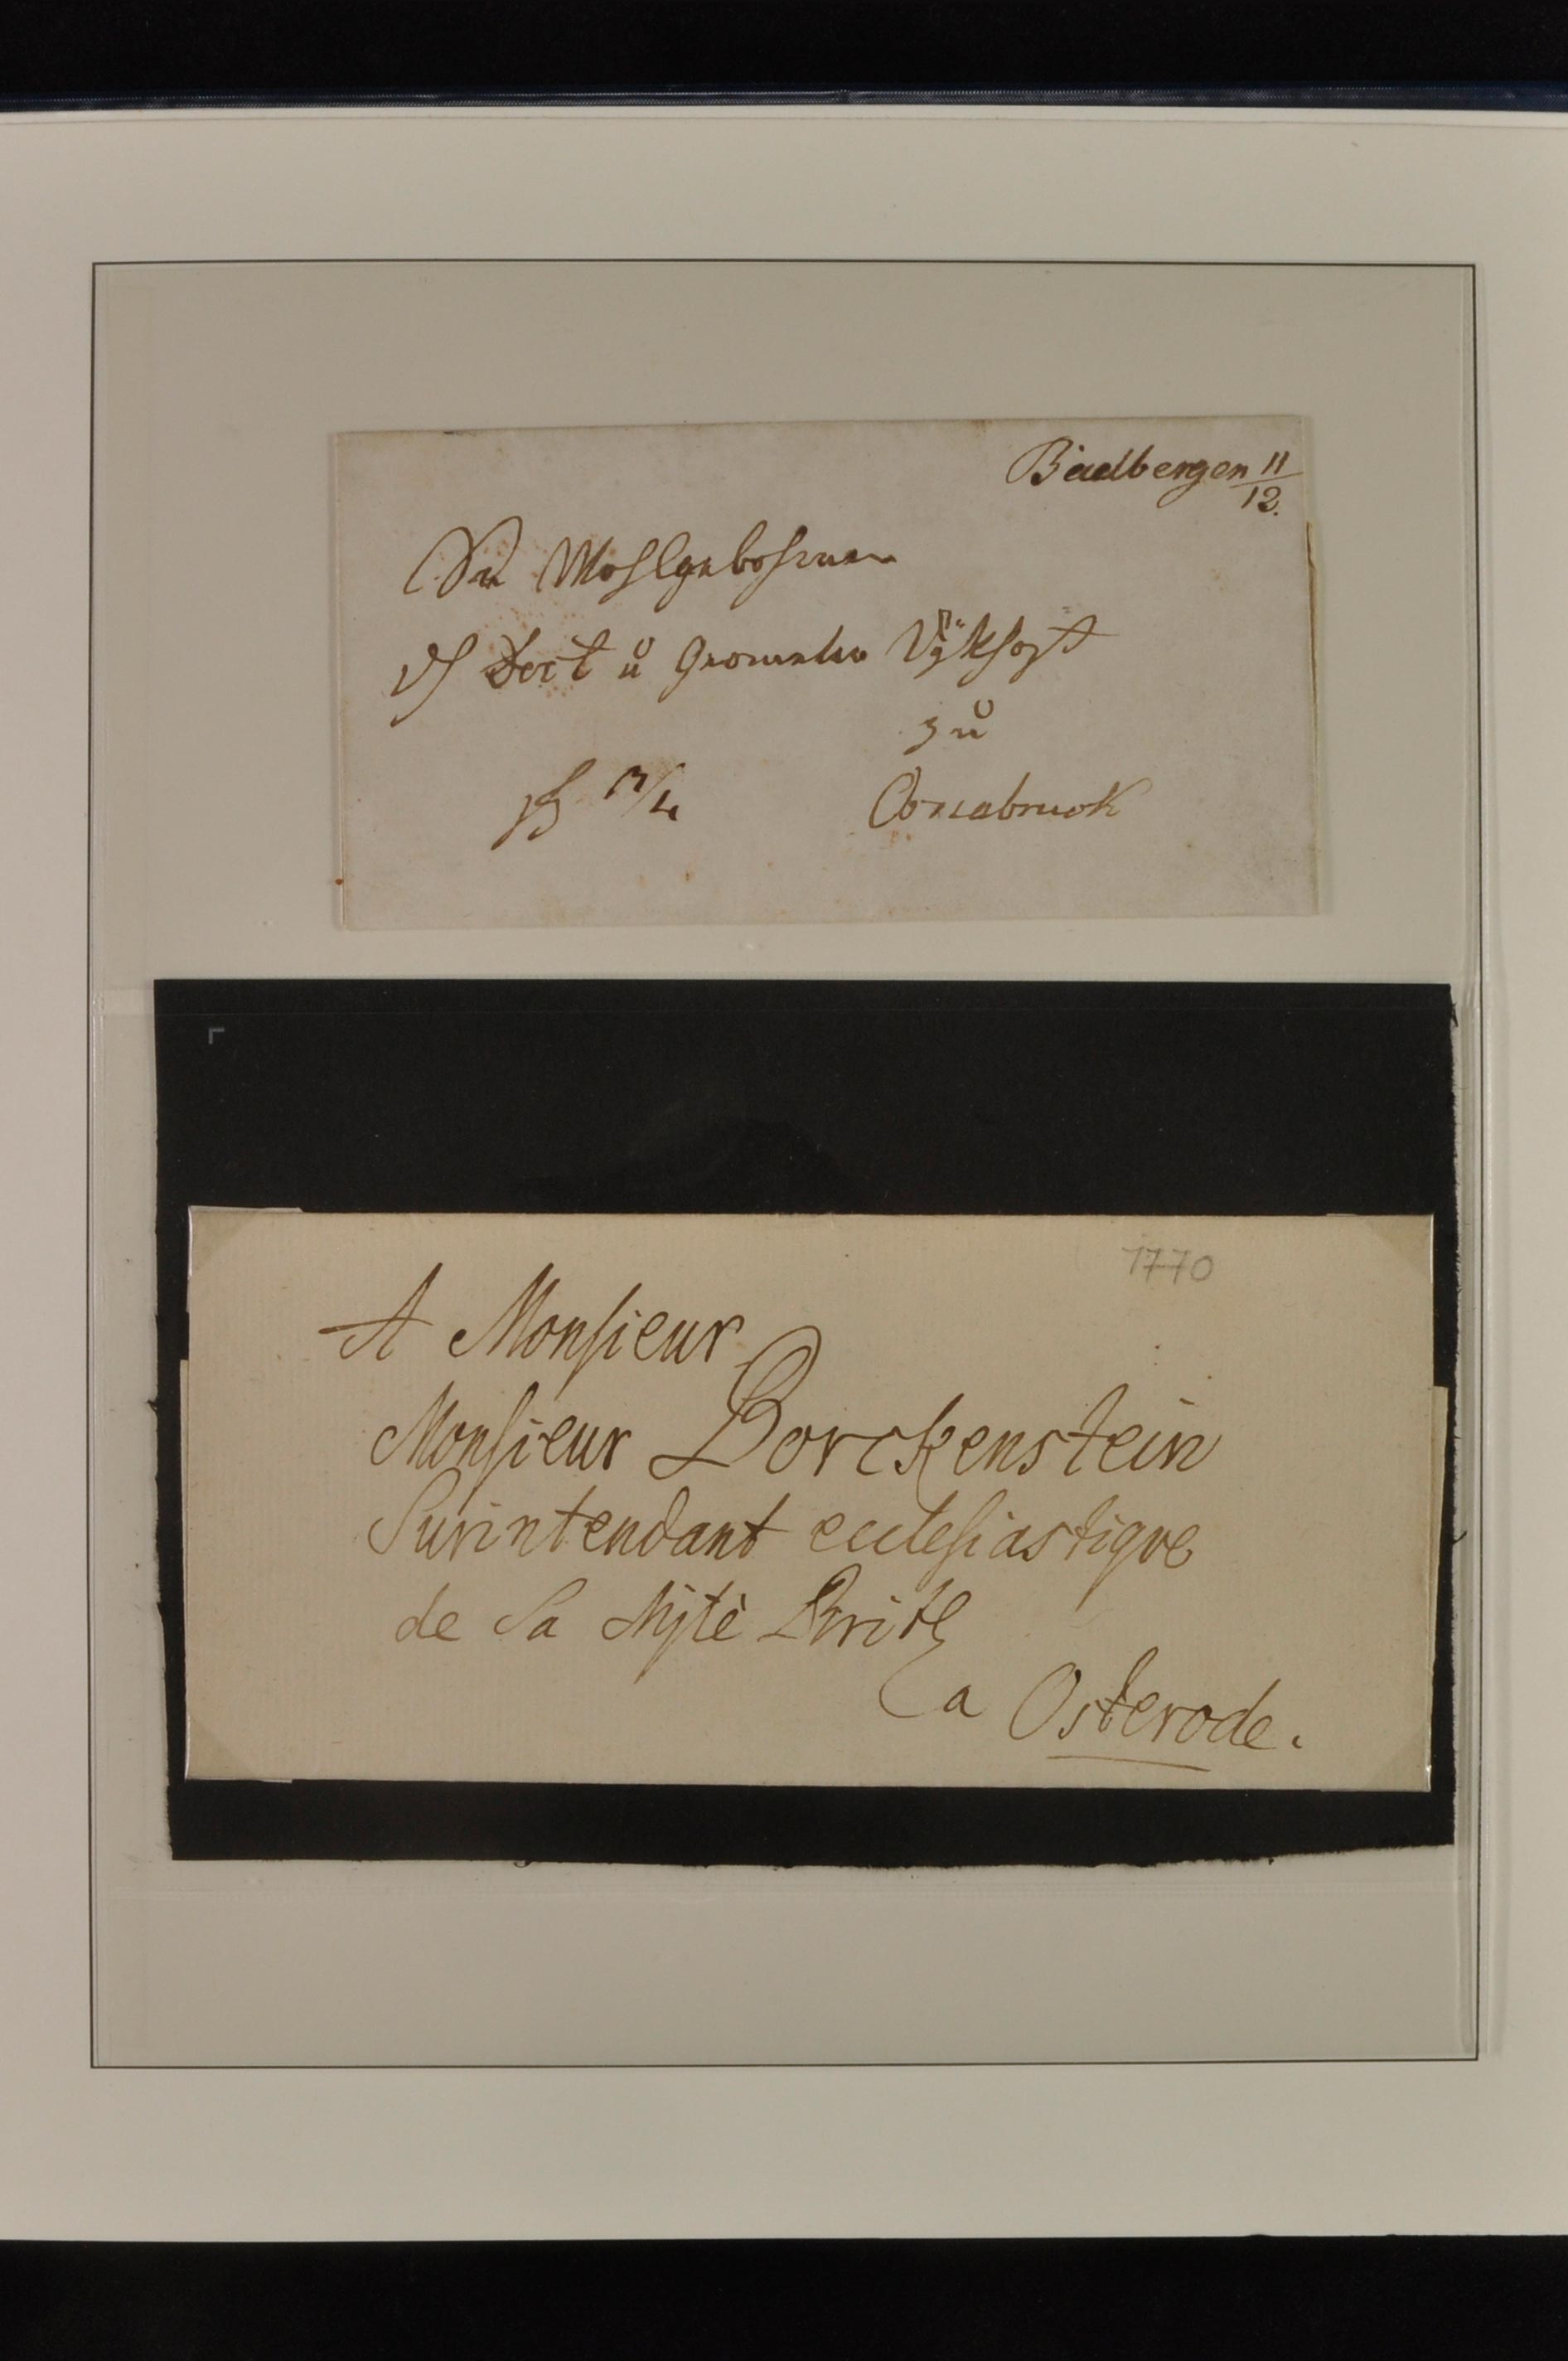 Badbergen 11/12.
Wohlgebohrnen
Doct u Geometer
zu
Osnabruck
1770
A Monsieur
Monsieur Borckenstein
Surintendant ecclesiastique
de Sa Mjté Brit
a Osterode.